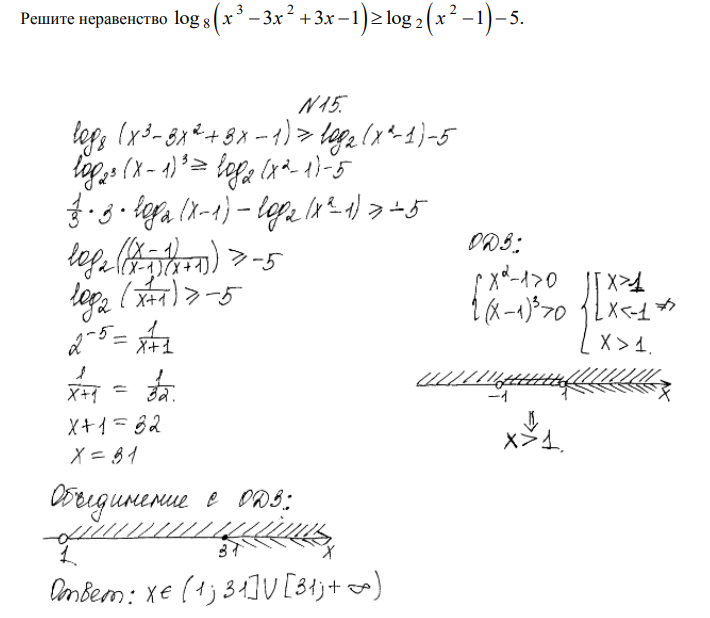 Решите неравенство log₈(x³ − 3x² + 3x − 1) ≥ log₂(x² − 1) − 5.
N15.
log₈ (x³ − 3x² + 3x − 1) ≥ log₂ (x² − 1) − 5
log₂³ (x − 1)³ ≥ log₂ (x² − 1) − 5
1/3 · 3 · log₂ (x − 1) − log₂ (x² − 1) ≥ − 5
log₂ ((x − 1)/((x − 1)(x + 1))) ≥ −5
log₂ (1/(x+1)) ≥ −5
2⁻⁵ = 1/(x+1)
1/(x+1) = 1/32.
x + 1 = 32
x = 31
ОДЗ:
{ x² − 1 > 0 { [ x > 1
{ (x − 1)³ > 0 { [ x < −1 ⇒
{ x > 1.
−1 1 x
⇓
x > 1.
Объединение с ОДЗ:
1 31 x
Ответ: x ∈ (1; 31] ∪ [31; + ∞)